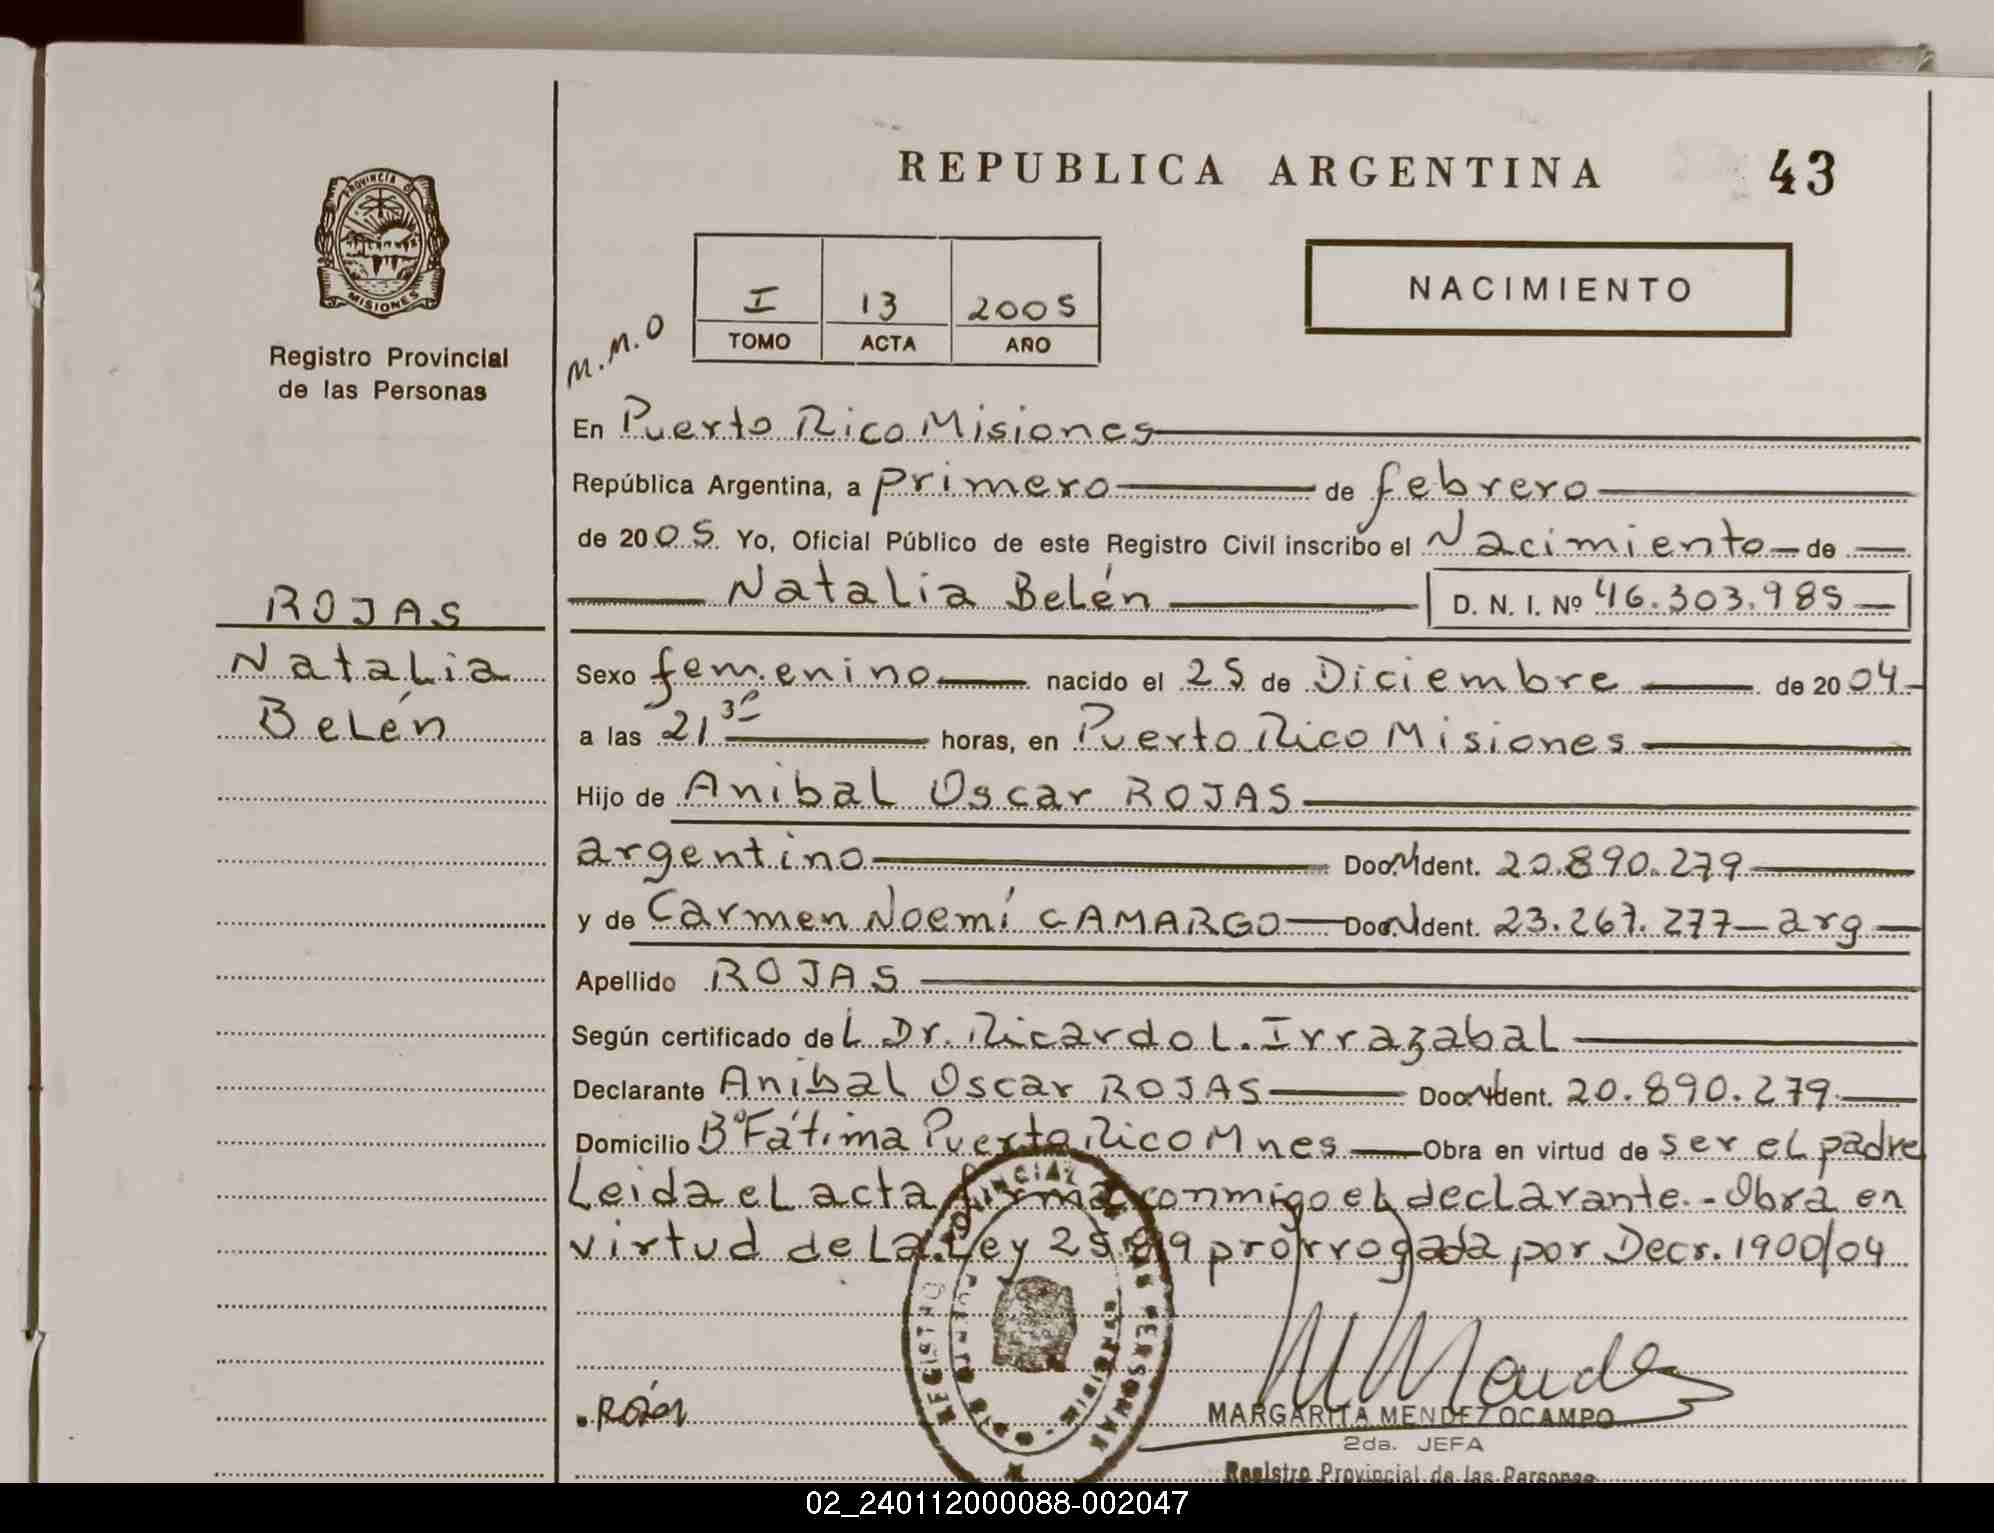 REPUBLICA ARGENTINA
43
PROVINCIA DE
MISIONES
Registro Provincial
de las Personas
M.M.O
I 13 2005
TOMO ACTA AÑO
NACIMIENTO
En Puerto Rico Misiones
República Argentina, a primero de febrero
de 2005. Yo, Oficial Público de este Registro Civil inscribo el Nacimiento de
Natalia Belén D. N. I. Nº 46.303.985
ROJAS
Natalia
Belén
Sexo femenino nacido el 25 de Diciembre de 2004
a las 21 30 horas, en Puerto Rico Misiones
Hijo de Anibal Oscar ROJAS
argentino Doc. N Ident. 20.890.279
y de Carmen Noemí CAMARGO Doc. N Ident. 23.267.277 arg
Apellido ROJAS
Según certificado de L Dr. Ricardo L. Irrazabal
Declarante Anibal Oscar ROJAS Doc. N Ident. 20.890.279
Domicilio Bº Fátima Puerto Rico Mnes Obra en virtud de ser el padre
Leida el acta firma conmigo el declarante.- Obra en
virtud de la Ley 25.819 prorrogada por Decr. 1900/04
REGISTRO PROVINCIAL DE LAS PERSONAS
PUERTO RICO MISIONES
MARGARITA MENDEZ OCAMPO
2da. JEFA
Registro Provincial de las Personas
02_240112000088-002047